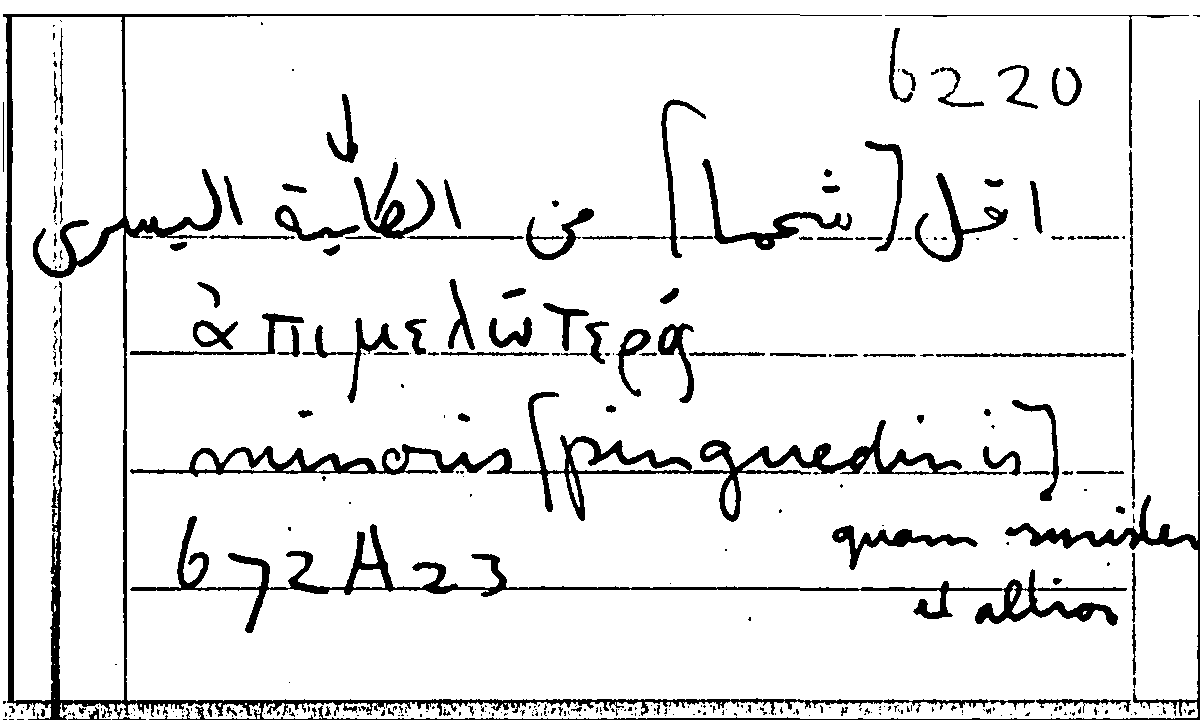 6220
اقل [شحما] من الكلية اليسرى
ἀπιμελώτερά
minoris [pinguedinis]
quam sinister
672A23
et altior